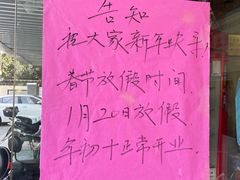 告知
祝大家新年快乐!
春节放假时间
1月20日放假.
年初十正常开业.